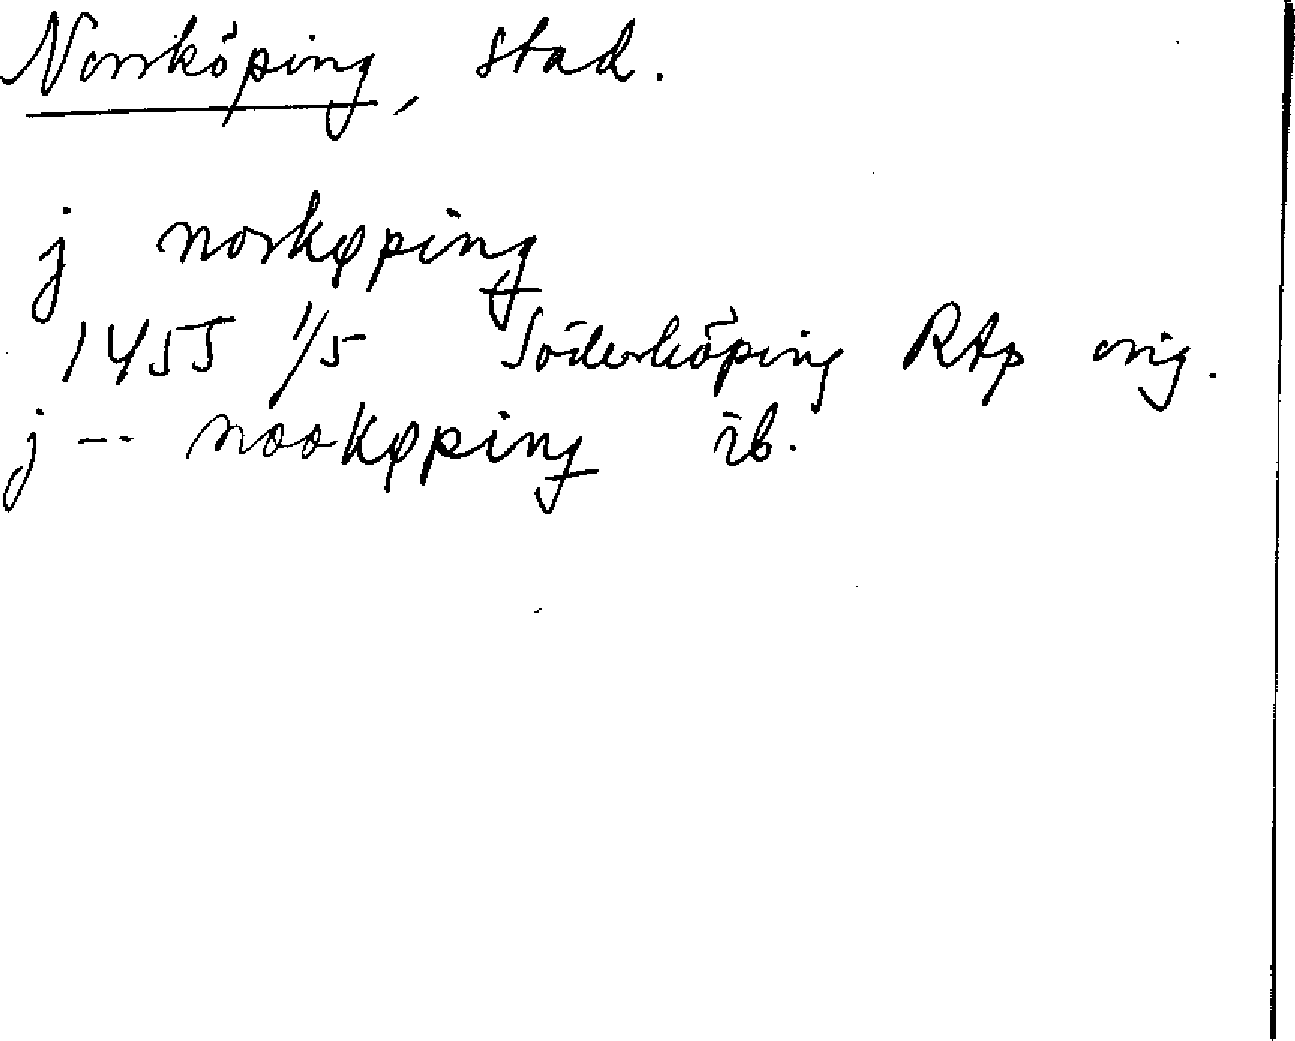 Norrköping, stad.
j norkøping
1455 1/5 Söderköping RAp orig.
j -- nookøping ib.